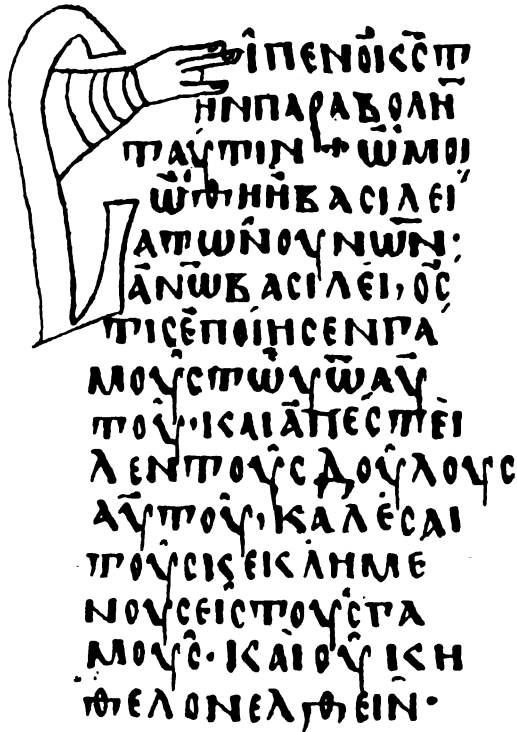 ΕΙΠΕΝΟΚ̅Ϲ̅Τ
ΗΝΠΑΡΑΒΟΛΗ̅
ΤΑΥΤΙΝ + ΩΜΟΙ
ΩΘΗΗΒΑϹΙΛΕΙ
ΑΤΩΝΟΥΝΩ̅Ν̅:
ΑΝΩ̅ΒΑϹΙΛΕΙ, ΟϹ
ΤΙϹΕΠΟΙΗϹΕΝΓΑ
ΜΟΥϹΤΩΥΩ̅ΑΥ
ΤΟΥ·ΚΑΙΑΠΕϹΤΕΙ
ΛΕΝΤΟΥϹΔΟΥΛΟΥϹ
ΑΥΤΟΥ, ΚΑΛΕϹΑΙ
ΤΟΥϹΚΕΚΛΗΜΕ
ΝΟΥϹΕΙϹΤΟΥϹΓΑ
ΜΟΥϹ·ΚΑΙΟΥΚΗ
ΘΕΛΟΝΕΛΘΕΙΝ·